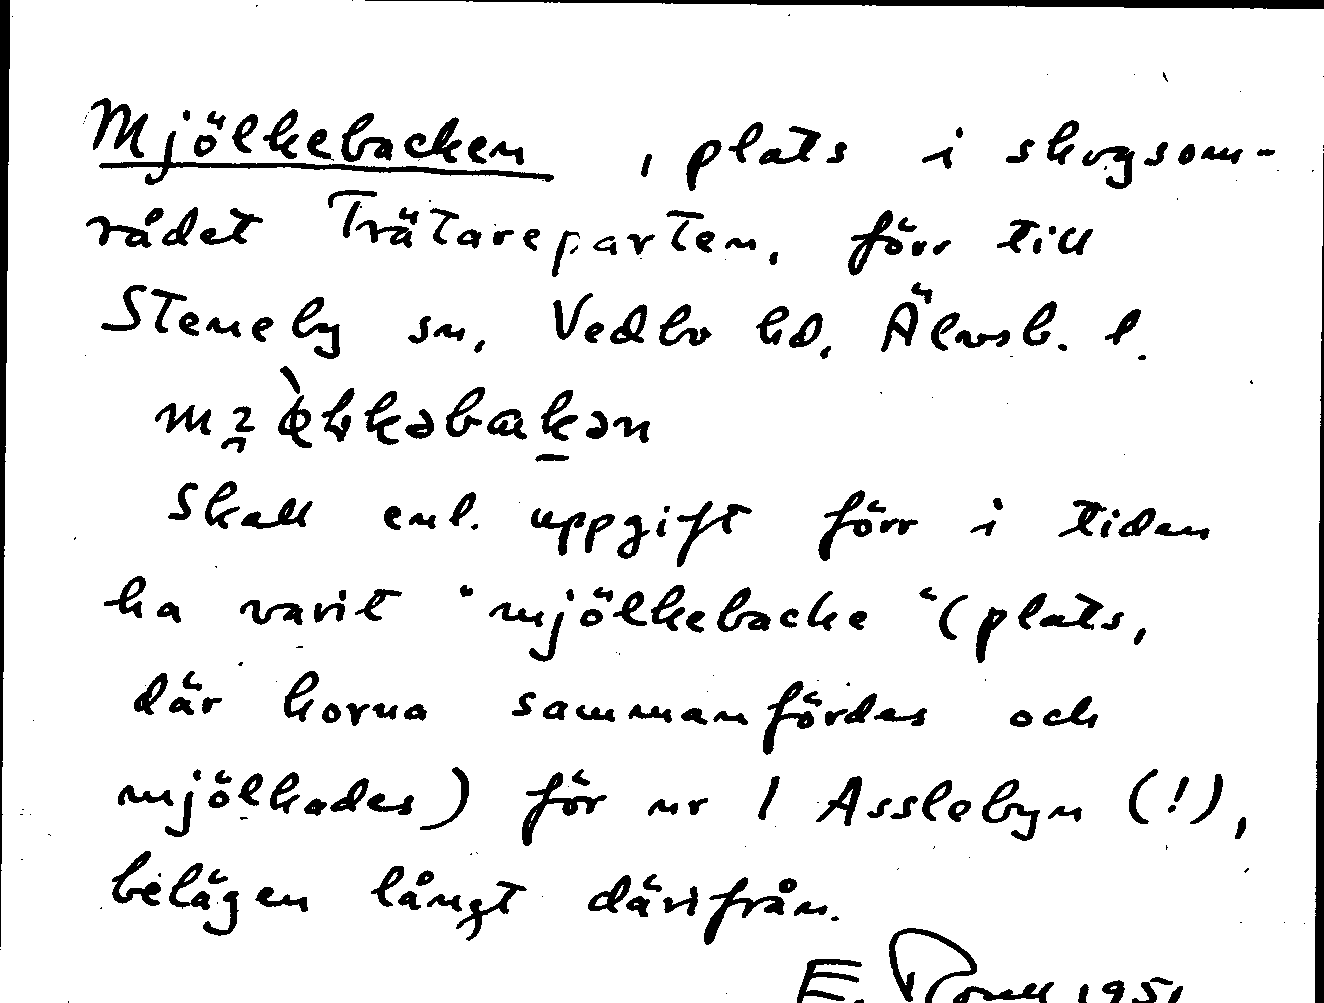 Mjölkebacken, plats i skogsom-
rådet Trätareparten, förr till
Steneby sn, Vedbo hd, Älvsb. l.
Skall enl. uppgift förr i tiden
ha varit "mjölkebacke" (plats,
där korna sammanfördes och
mjölkades) för nr 1 Asslebyn (!),
belägen långt därifrån.
E. 1951